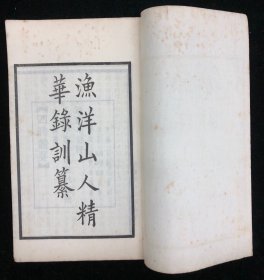 漁洋山人精
華錄訓纂